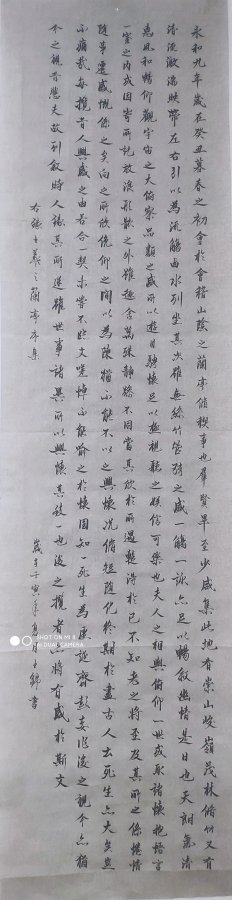 永和九年歲在癸丑暮春之初會於會稽山陰之蘭亭脩禊事也羣賢畢至少咸集此地有崇山峻嶺茂林脩竹又有
清流激湍映帶左右引以為流觴曲水列坐其次雖無絲竹管弦之盛一觴一詠亦足以暢敘幽情是日也天朗氣清
惠風和暢仰觀宇宙之大俯察品類之盛所以遊目騁懷足以極視聽之娛信可樂也夫人之相與俯仰一世或取諸懷抱晤言
一室之內或因寄所託放浪形骸之外雖趣舍萬殊靜躁不同當其欣於所遇暫得於己不知老之將至及其所之既惓情
隨事遷感慨係之矣向之所欣俛仰之間以為陳跡猶不能不以之興懷況脩短隨化終期於盡古人云死生亦大矣豈
不痛哉每攬昔人興感之由若合一契未嘗不臨文嗟悼不能喻之於懷固知一死生為虛誕齊彭殤為妄作後之視今亦猶
今之視昔悲夫故列敘時人錄其所述雖世事異所以興懷其致一也後之攬者亦將有感於斯文
右錄王羲之蘭亭序
壬寅年
書
SHOT ON MI 8
AI DUAL CAMERA